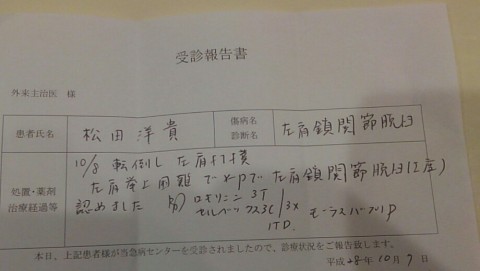 受診報告書
外来主治医 様
患者氏名 松田洋貴 傷病名 診断名 左肩鎖関節脱臼
処置・薬剤 治療経過等
10/8 転倒し左肩打撲
左肩挙上困難でXpで左肩鎖関節脱臼(2度)
認めました ロキソニン 3T
セルベックス3C/3x モーラスパップ1P
1TD
本日、上記患者様が当急病センターを受診されましたので、診療状況をご報告致します。
平成28年10月9日